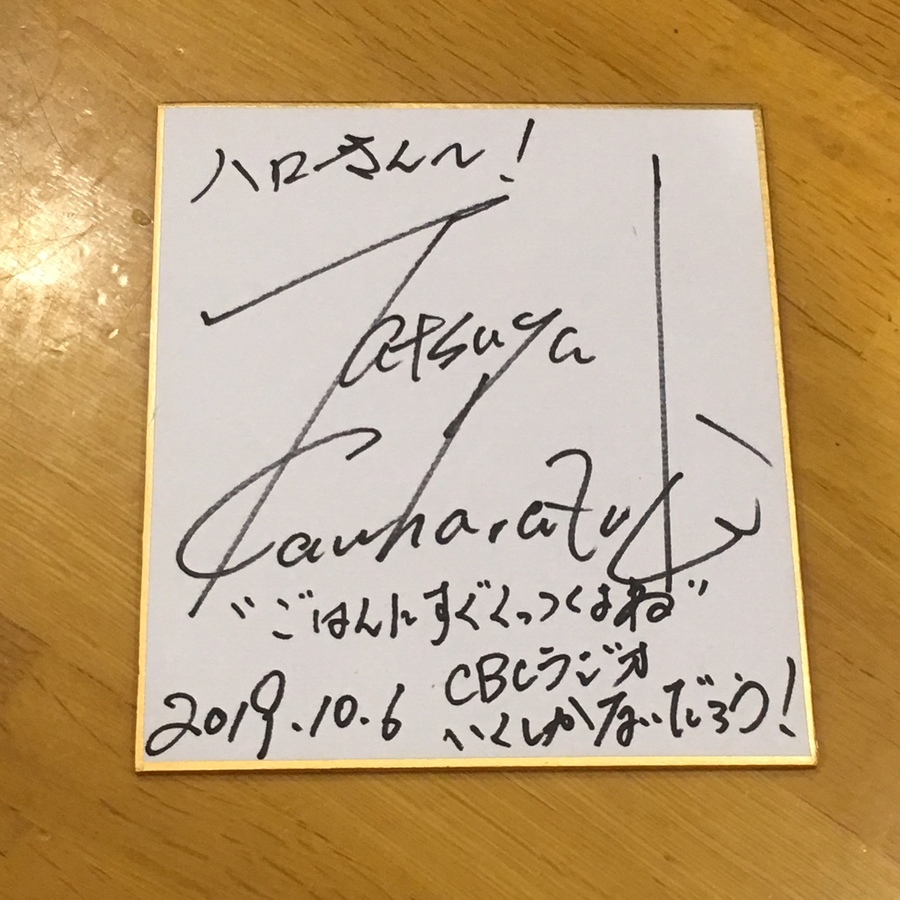 ハローさんへ!
Tatsuya
"ごはんにすぐくっつくよね"
2019.10.6
CBCラジオ
いくしかないだろう!